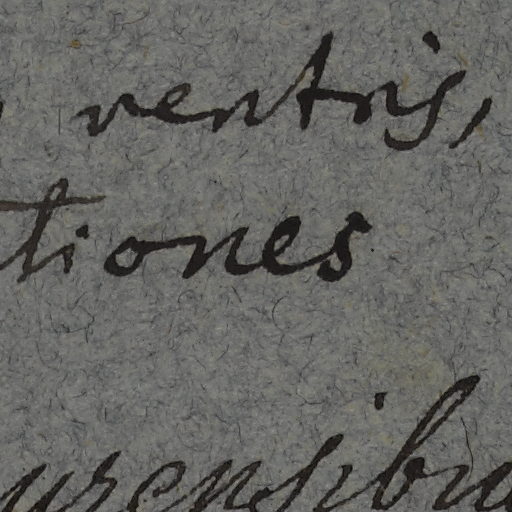 ventris,
tiones
urensibu